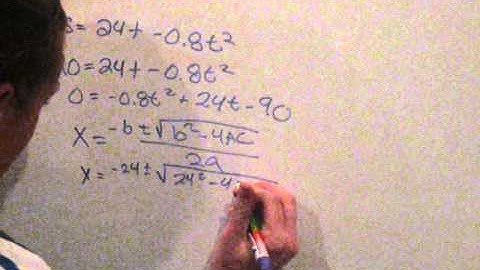 S = 24t - 0.8t²
90 = 24t - 0.8t²
0 = -0.8t² + 24t - 90
X = -b ± √b² - 4AC
2a
X = -24 ± √24² - 4